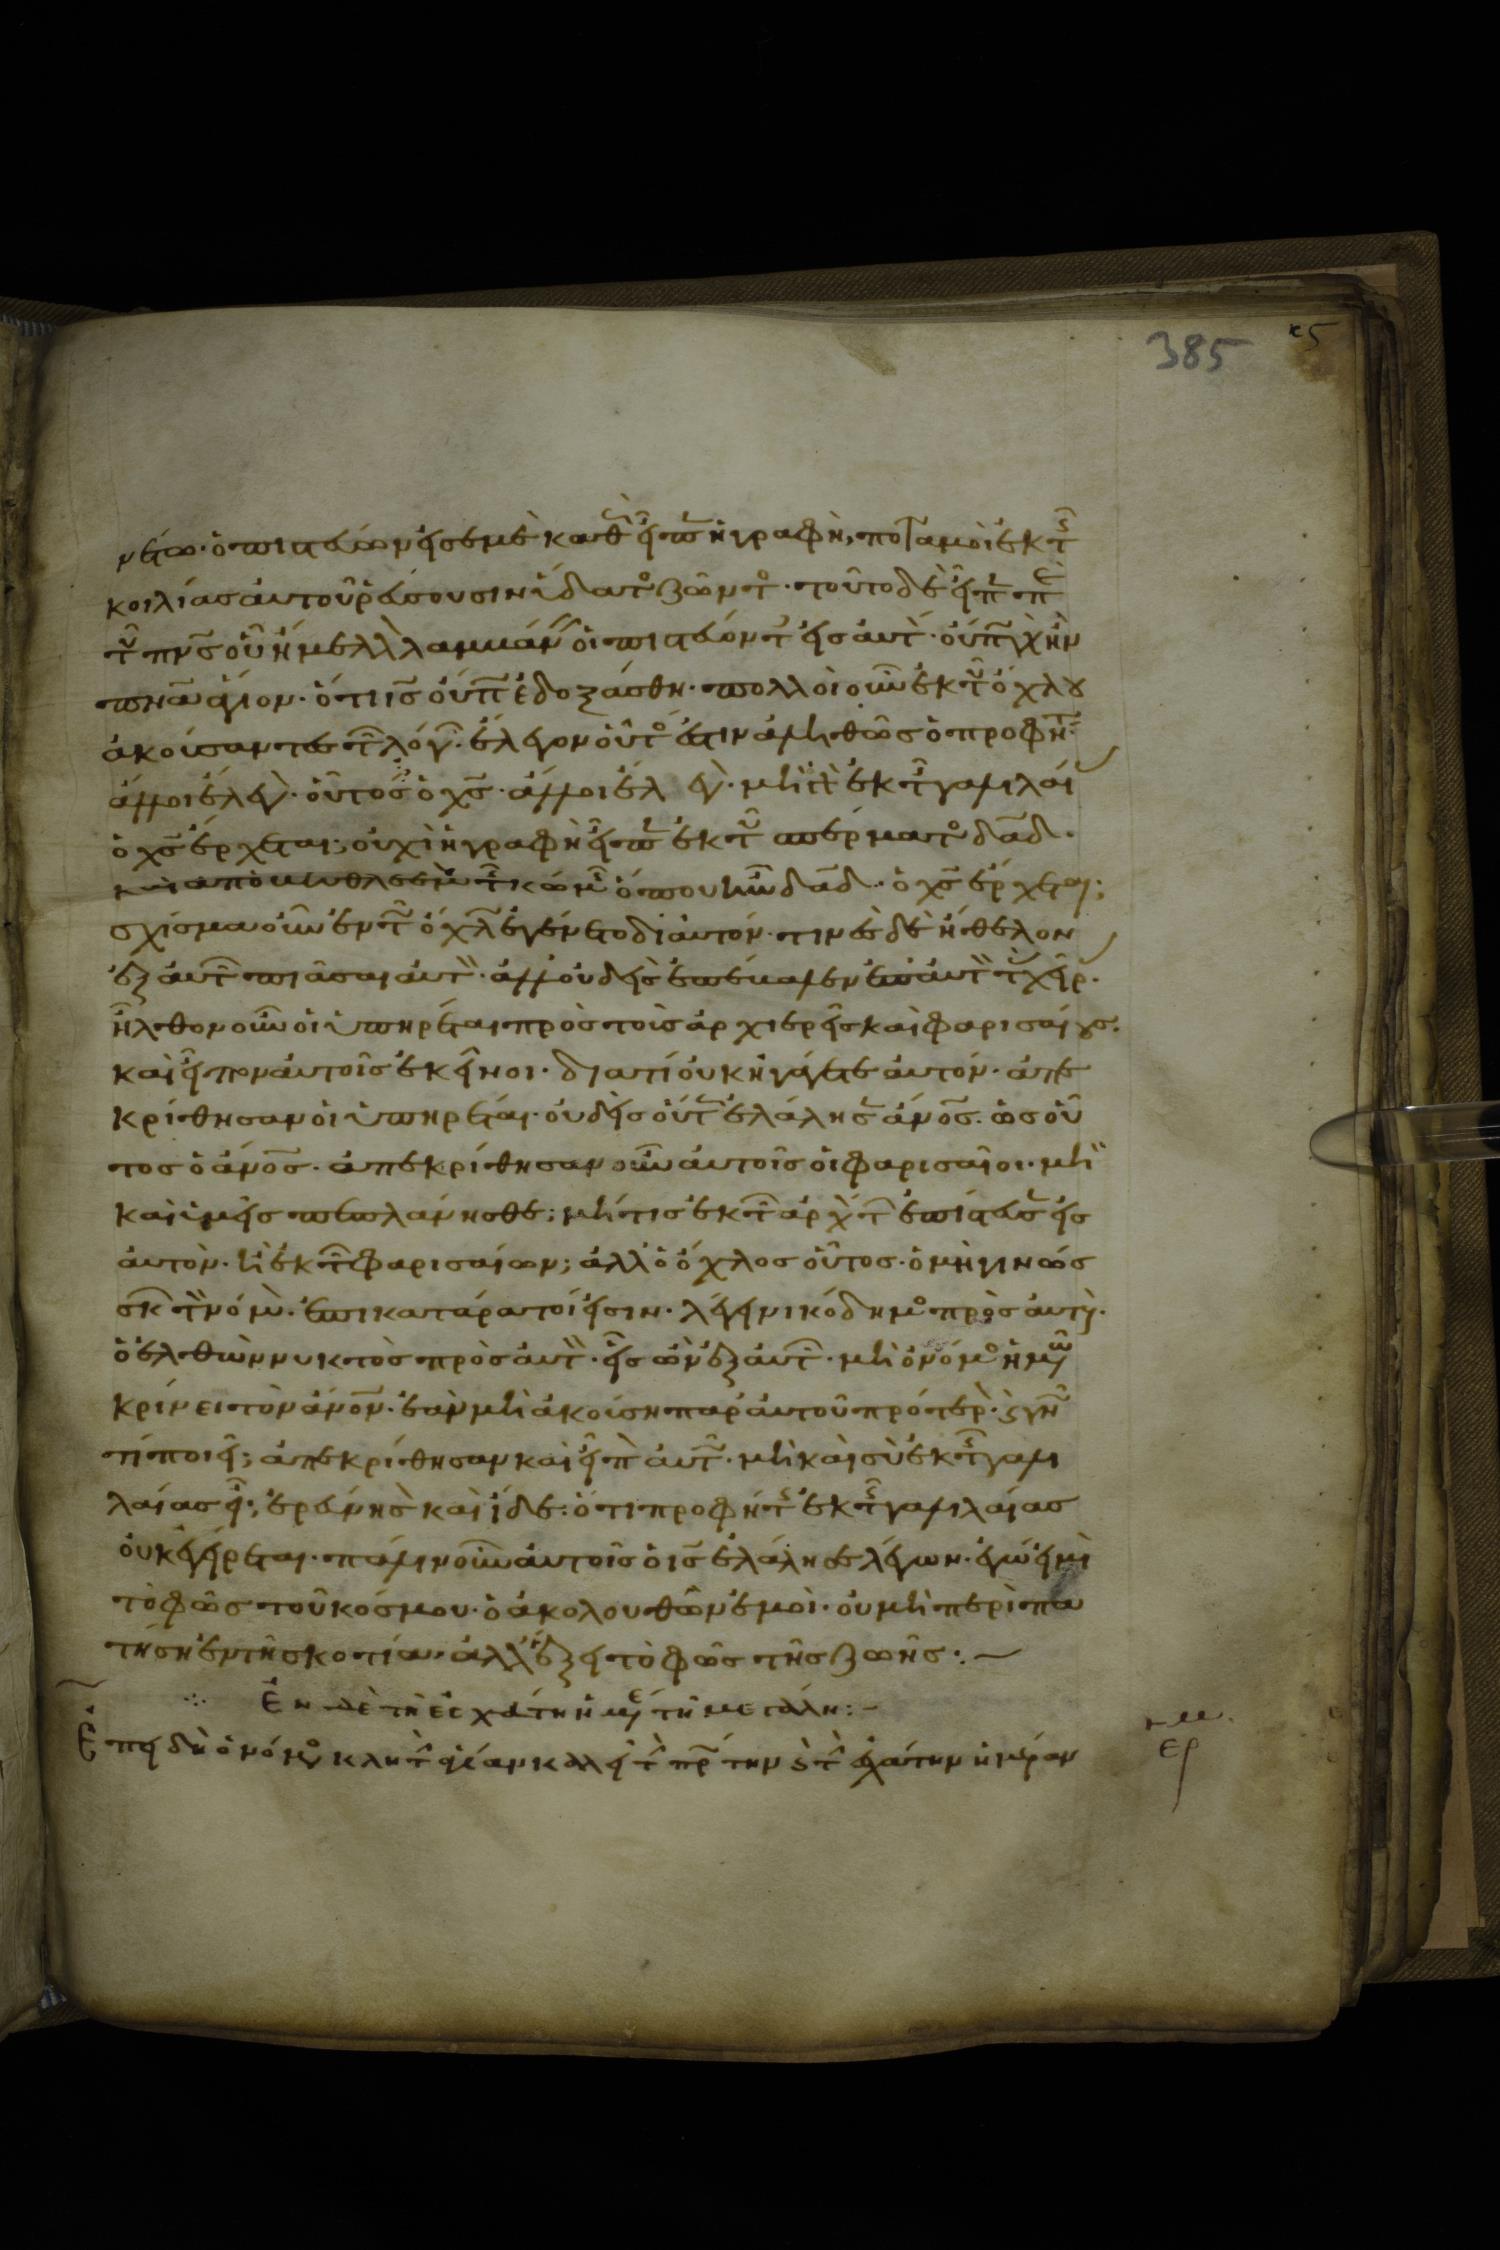 385 κϛ
νέτω· ὁ πιστεύων εἰς ἐμὲ καθ εἶπ ἡ γραφὴ, ποταμοὶ ἐκ τ
κοιλίας αὐτοῦ ῥεύσουσιν ὕδατ ζῶντ· τοῦτο δὲ εἶπ πε
τ πνς οὗ ἤμελλ λαμβάν οἱ πιστεύοντ εἰς αὐτ· οὔπ γὰρ ἦν
πνα ἅγιον· ὅτι ις οὔπ ἐδοξάσθη· πολλοὶ οὖν ἐκ τ ὄχλου
ἀκούσαντες τ λόγ· ἔλεγον οὗτ ἐστιν ἀληθῶς ὁ προφήτ·
ἄλλοι ἔλεγ· οὗτος ὁ χς· ἄλλοι ἔλεγ· μὴ ἐκ τ γαλιλαί
ὁ χς ἔρχεται; οὐχὶ ἡ γραφὴ εἶπ ἐκ τ σπέρματ δαδ·
καὶ ἀπὸ βηθλεὲμ τ κώμ ὅπου ἦν δαδ· ὁ χς ἔρχεται;
σχίσμα οὖν ἐν τ ὄχλ ἐγένετο δι αὐτόν· τινὲς δὲ ἤθελον
ἐξ αὐτ πιᾶσαι αὐτ· ἀλλ οὐδεὶς ἐπέβαλεν ἐπ αὐτ τ χεῖρ·
ἦλθον οὖν οἱ ὑπηρέται πρὸς τοὺς ἀρχιερεῖς καὶ φαρισαίους·
καὶ εἶπον αὐτοῖς ἐκεῖνοι· διατί οὐκ ἠγάγετε αὐτόν· ἀπε
κρίθησαν οἱ ὑπηρέται· οὐδεὶς οὕτ ἐλάλησ ἀνος· ὡς οὗ
τος ὁ ἀνος· ἀπεκρίθησαν οὖν αὐτοῖς οἱ φαρισαῖοι· μὴ
καὶ ὑμεῖς πεπλάνησθε; μή τις ἐκ τ ἀρχόντ ἐπίστευσ εἰς
αὐτὸν· ἢ ἐκ τ φαρισαίων; ἀλλ ὁ ὄχλος οὗτος· ὁ μὴ γινώσ
σκ τ νόμ· ἐπικατάρατοί εἰσιν· λέγει νικόδημ πρὸς αὐτ·
ὁ ἐλθὼν νυκτὸς πρὸς αὐτ· εἷς ὢν ἐξ αὐτ· μὴ ὁ νόμ ἡμῶν
κρίνει τὸν ἀνον· ἐὰν μὴ ἀκούσῃ παρ αὐτοῦ πρότερ· ϗ γν
τί ποιεῖ; ἀπεκρίθησαν καὶ εἶπ αὐτ· μὴ καὶ σὺ ἐκ τ γαλι
λαίας εἶ; ἐρεύνησ καὶ ἴδε· ὅτι προφήτ ἐκ τ γαλιλαίας
οὐκ ἐγείρεται· πάλιν οὖν αὐτοῖς ὁ ις ἐλάλησε λέγων· ἐγώ εἰμι
τὸ φῶς τοῦ κόσμου· ὁ ἀκολουθῶν ἐμοὶ· οὐ μὴ περιπα
τήσῃ ἐν τῇ σκοτίᾳ· ἀλλ ἕξει τὸ φῶς τῆς ζωῆς:
Ἐν δὲ τῇ ἐσχάτῃ ἡμέ τῇ μεγάλη:
Ἐπειδὴ ὁ νόμ κλητ ἁγίαν καλεῖ τ πρ την ϗ τ ἐσχάτην ἡμέραν